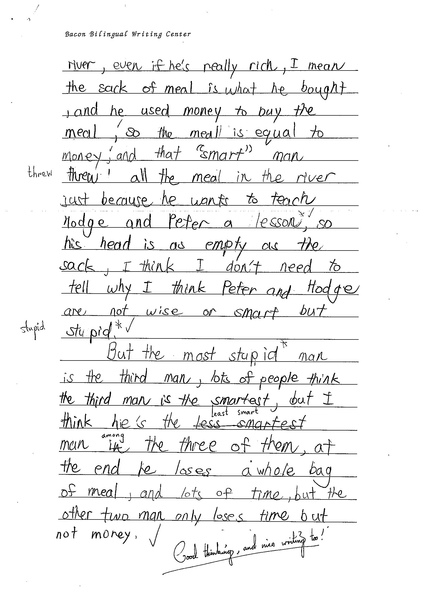 Bacon Bilingual Writing Center
river, even if he's really rich, I mean
the sack of meal is what he bought
, and he used money to buy the
meal, so the meal is equal to
money, and that "smart" man
threw threw all the meal in the river
just because he wants to teach
Hodge and Peter a lesson*, so
his head is as empty as the
sack, I think I don't need to
tell why I think Peter and Hodge
are not wise or smart but
stupid stupid.*
But the most stupid* man
is the third man, lots of people think
the third man is the smartest, but I
least smart
think he's the less smartest
among
man in the three of them, at
the end he loses a whole bag
of meal, and lots of time, but the
other two man only loses time but
not money.
Good thinking, and nice writing too!